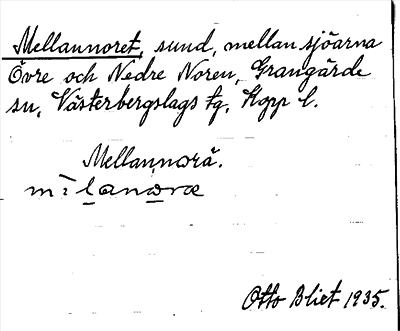 Mellannoret, sund, mellan sjöarna
Övre och Nedre Noren, Grangärde
sn, Västerbergslags tg, Kopp l.
Mellannorä.
Otto Blixt 1935.